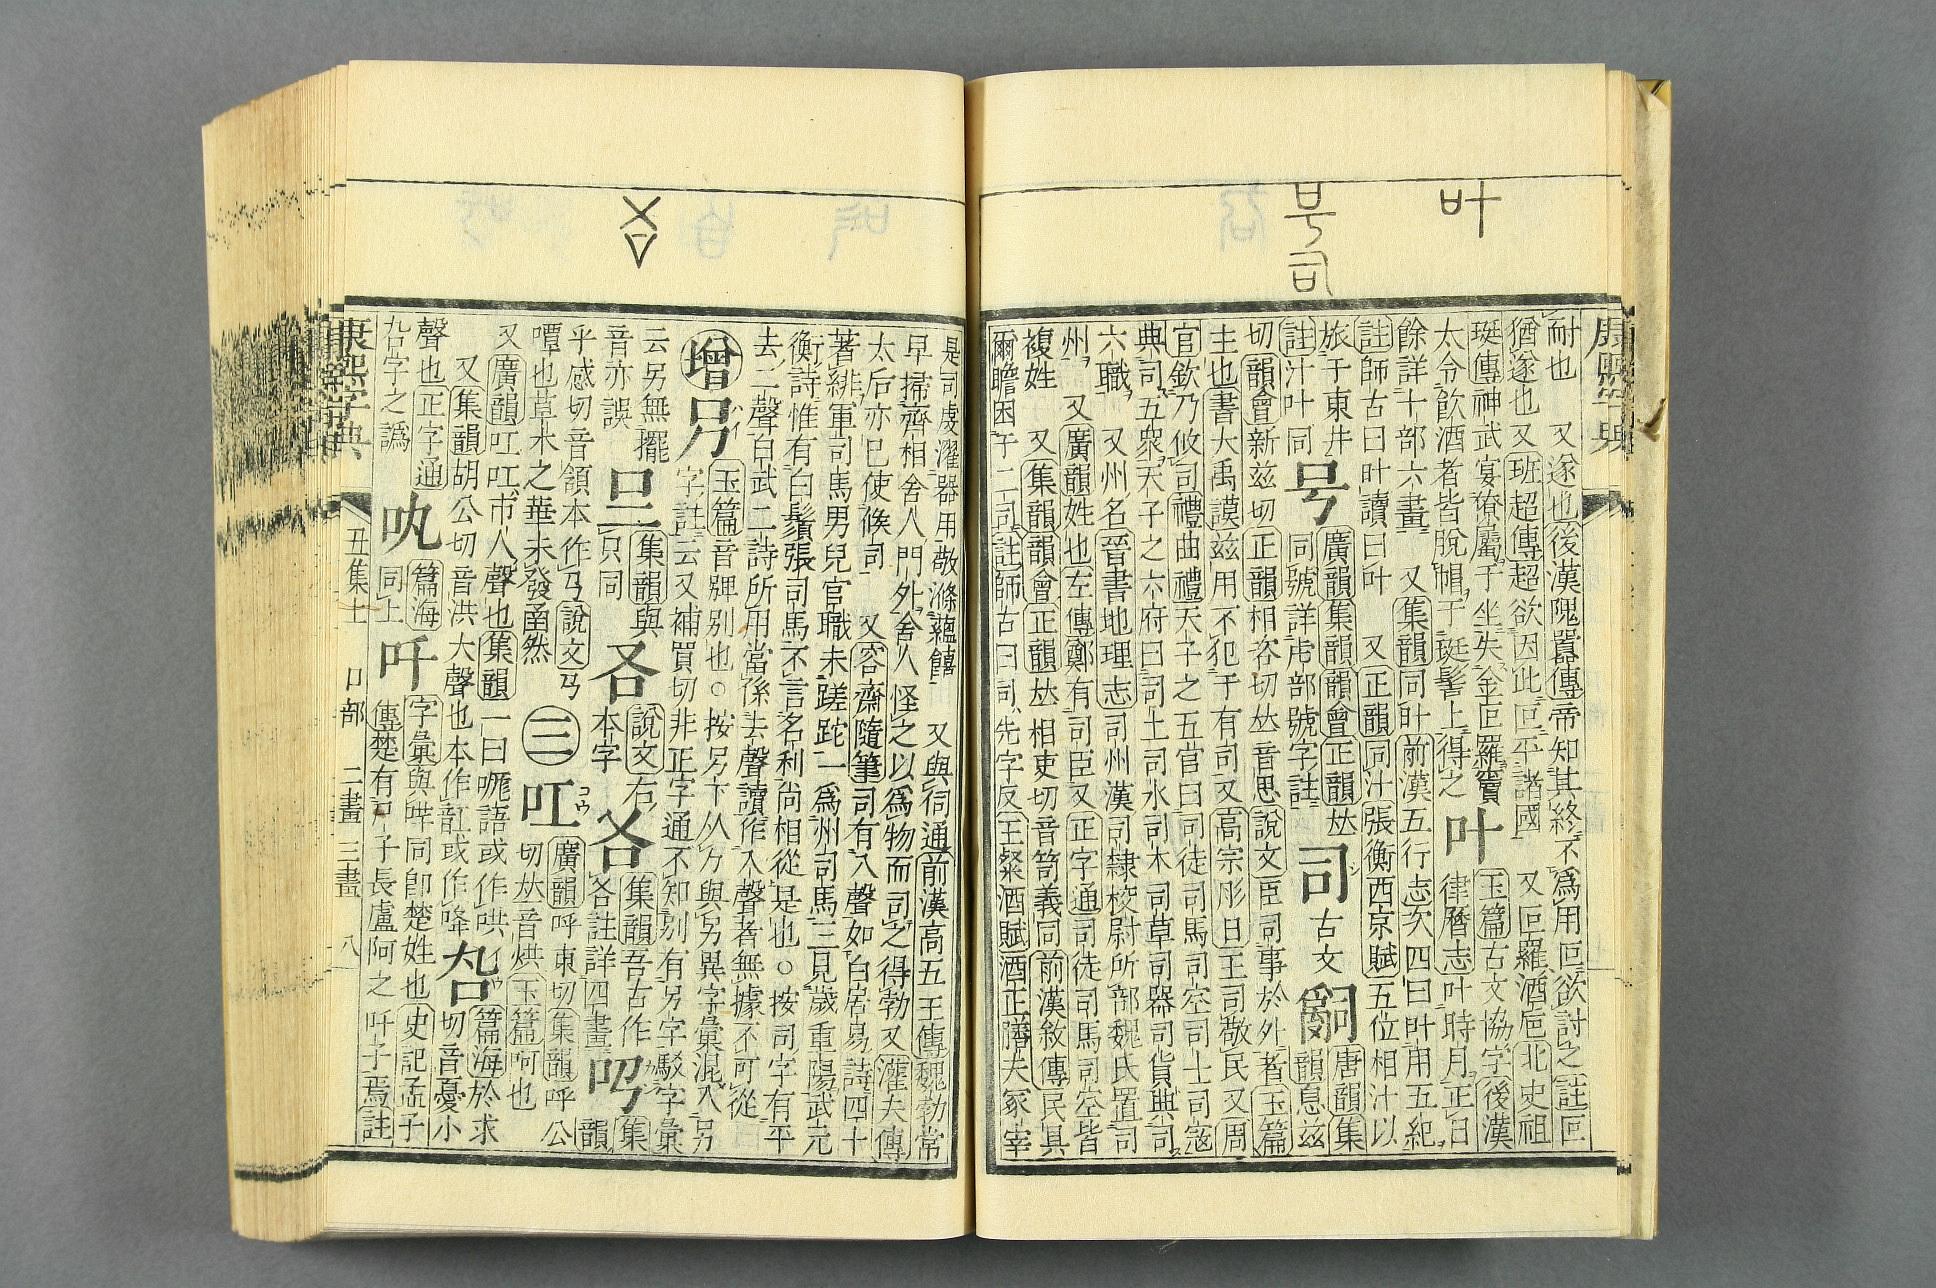 叶
号
司
康熙字典
耐也　又遂也後漢隗囂傳帝知其終不爲用叵欲討之註叵
猶遂也又班超傳超欲因此叵平諸國　又叵羅酒巵北史祖
珽傳神武宴僚屬于坐失金叵羅竇
太令飮酒者皆脫帽于珽髻上得之
叶　玉篇古文協字後漢
律曆志叶時月正日
餘詳十部六畫　又集韻同叶前漢五行志次四曰叶用五紀
註師古曰叶讀曰叶　又正韻同汁張衡西京賦五位相汁以
旅于東井
註汁叶同
号　廣韻集韻韻會正韻𠀤
同號詳虍部號字註
司　シ　古文　𤔲　唐韻集
韻息兹
切韻會新兹切正韻相咨切𠀤音思說文臣司事於外者玉篇
主也書大禹謨兹用不犯于有司又高宗肜日王司敬民又周
官欽乃攸司禮曲禮天子之五官曰司徒司馬司空司士司寇
典司五衆天子之六府曰司土司水司木司草司器司貨典司
六職　又州名晉書地理志司州漢司隸校尉所部魏氏置司
州　又廣韻姓也左傳鄭有司臣又正字通司徒司馬司空皆
複姓　又集韻韻會正韻𠀤相吏切音笥義同前漢敘傳民具
爾瞻困于二司註師古曰司先字反王粲酒賦酒正膳夫冢宰
是司虔濯器用敬滌蘊饎　又與伺通前漢高五王傳魏勃常
早掃齊相舍人門外舍人怪之以爲物而司之得勃又灌夫傳
太后亦已使候司　又容齋隨筆司有入聲如白居易詩四十
著緋軍司馬男兒官職未蹉跎一爲州司馬三見歲重陽武元
衡詩惟有白鬚張司馬不言名利尚相從是也○按司字有平
去二聲白武二詩所用當係去聲讀作入聲者無據不可從
增　叧　ハイ　玉篇音牌別也○按叧卞从力與另異字彙混入另
字註云又補買切非正字通不知別有叧字駁字彙
云另無擺
音亦誤
㕣　集韻與
只同
𠮢　說文右
本字
㕦　集韻吾古作
各註詳四畫
叼　集
韻
乎感切音頷本作𢎘說文𢎘
嘾也草木之華未發圅然
三　叿　コウ　廣韻呼東切集韻呼公
切𠀤音烘玉篇呵也
又廣韻叿叿市人聲也集韻一曰嚨語或作哄
又集韻胡公切音洪大聲也本作䜫或作啌
𠮵　イウ　篇海於求
切音憂小
聲也正字通
𠮵字之譌
吺　篇海
同上
吀　字彙與哶同卽楚姓也史記孟子
傳楚有吀子長盧阿之吀子焉註
康熙字典　丑集上　口部　二畫　三畫　八